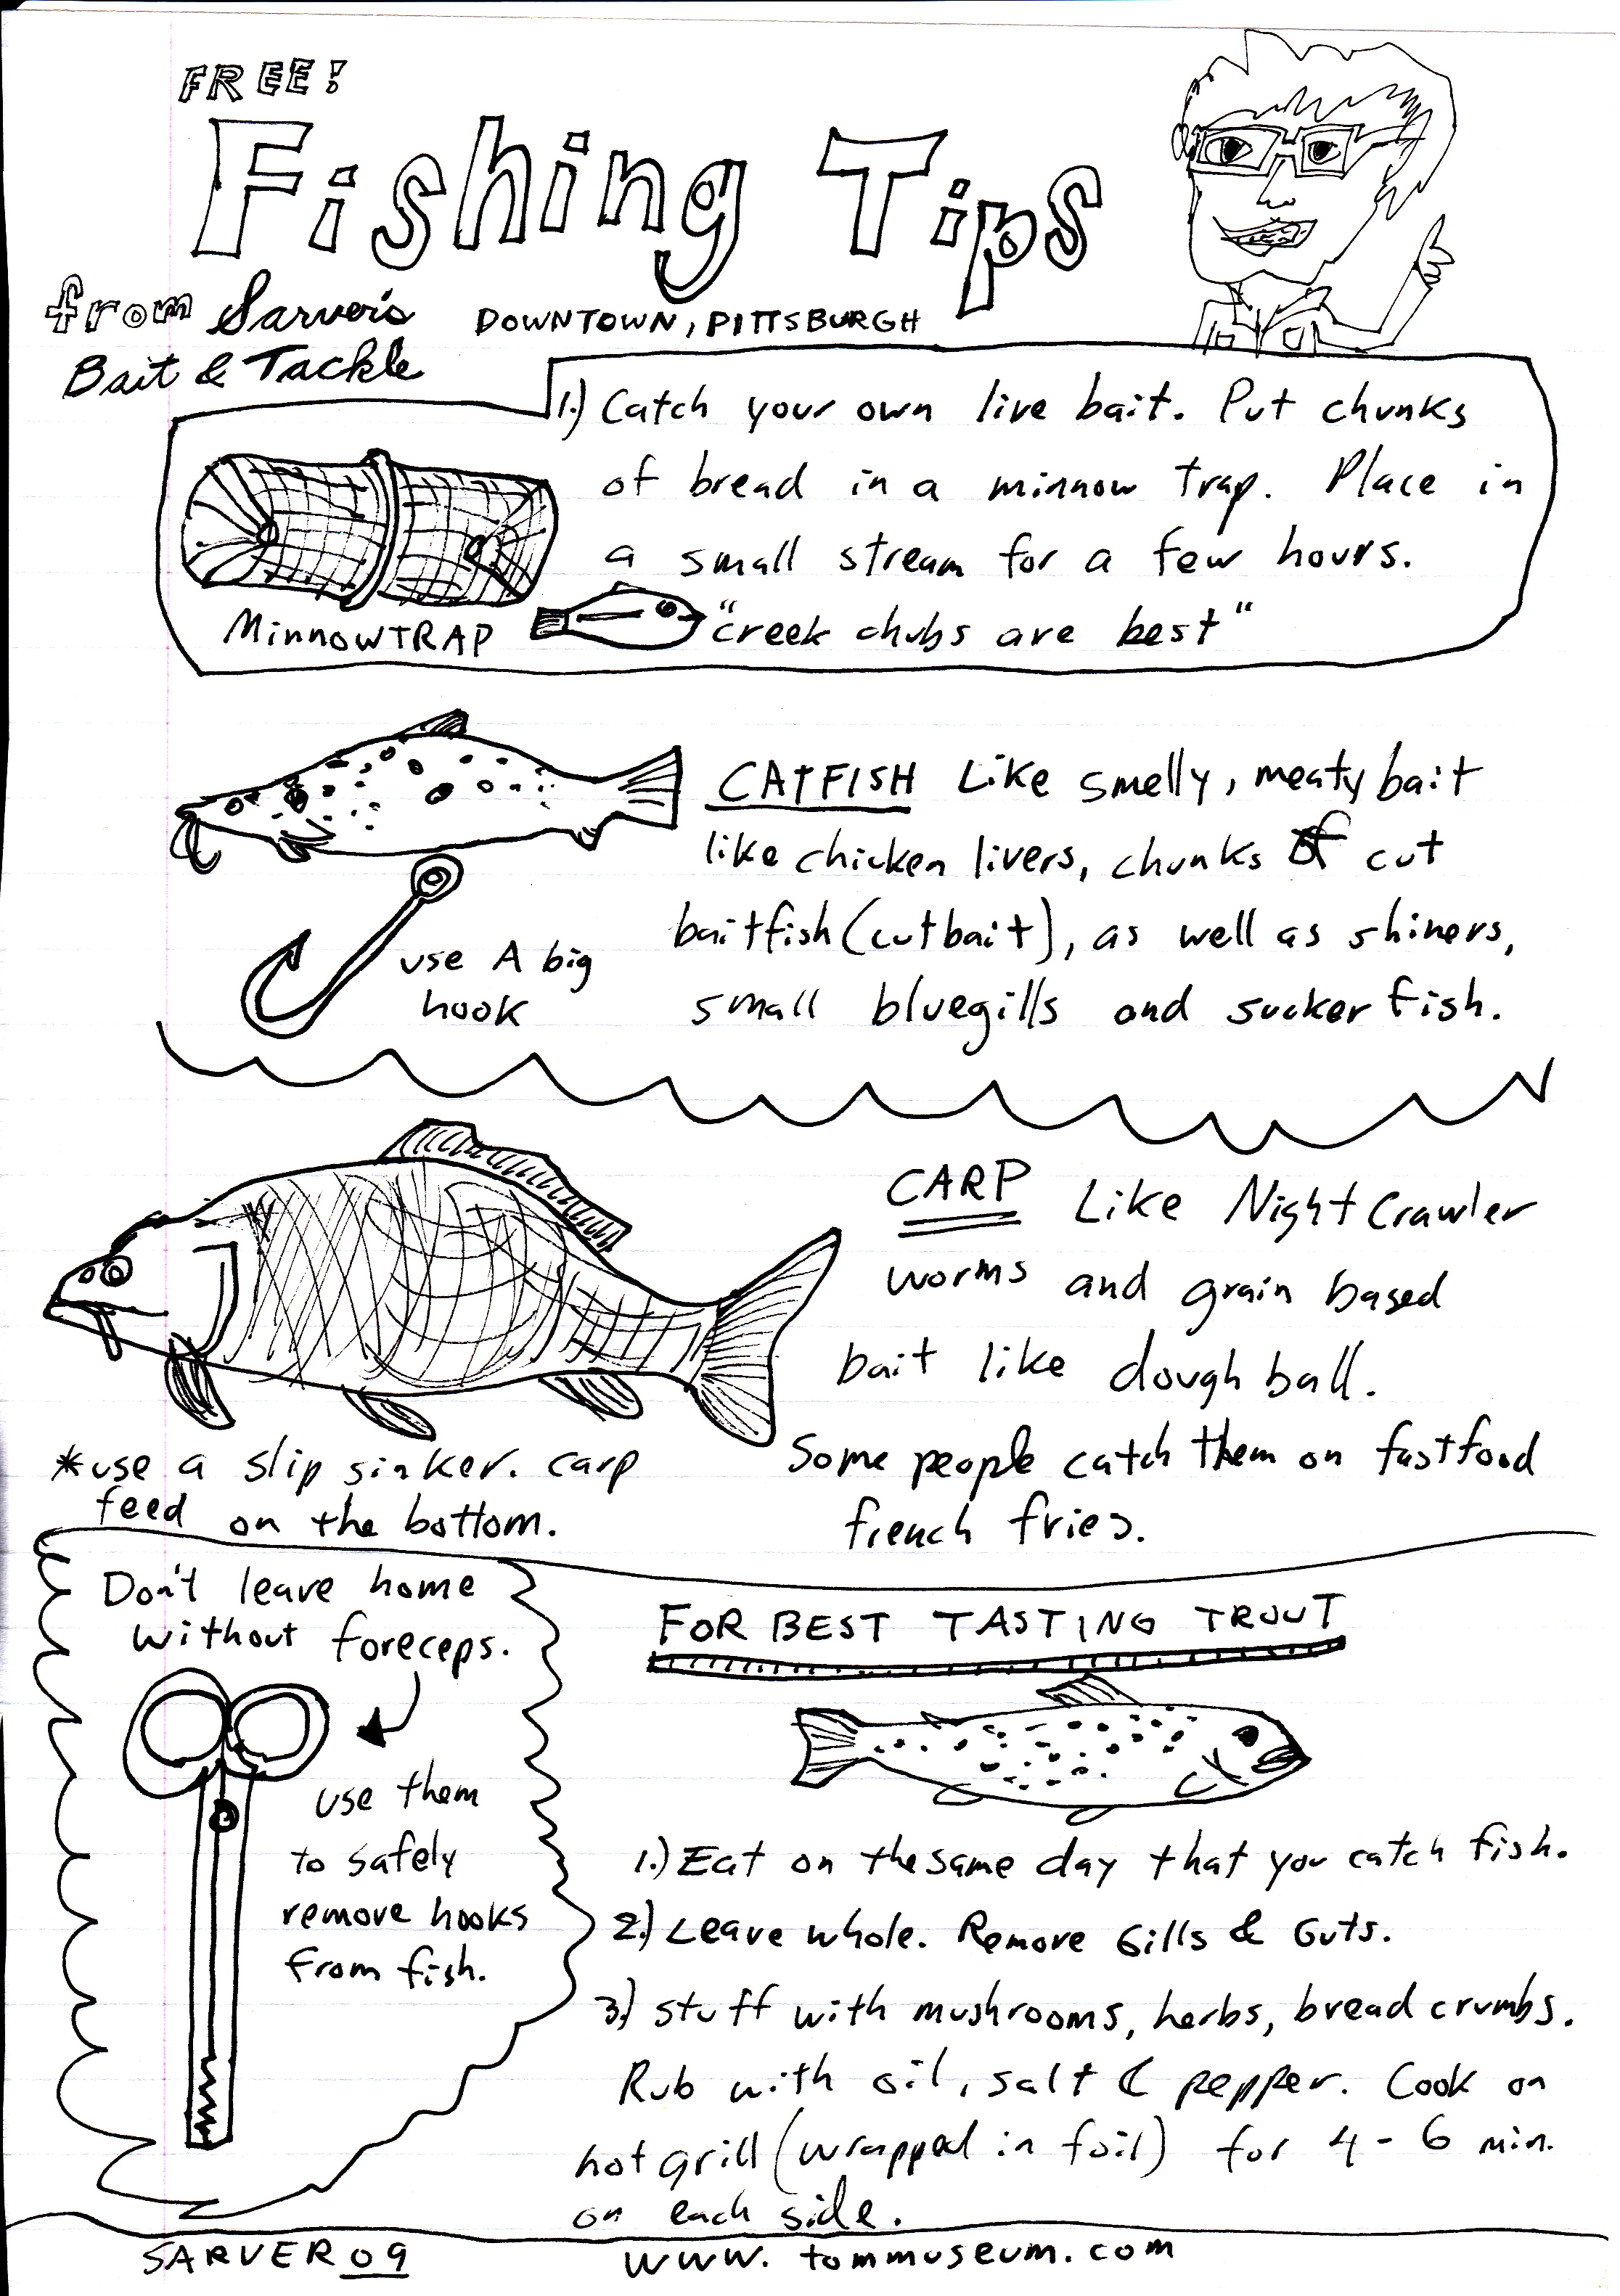 FREE!
Fishing Tips
from Sarver's
Bait & Tackle
DOWNTOWN, PITTSBURGH
1.) Catch your own live bait. Put chunks
of bread in a minnow trap. Place in
a small stream for a few hours.
MinnowTRAP
"creek chubs are best"
CATFISH Like smelly, meaty bait
like chicken livers, chunks of cut
baitfish (cutbait), as well as shiners,
small bluegills and sucker fish.
use A big
hook
CARP Like NightCrawler
worms and grain based
bait like dough ball.
Some people catch them on fastfood
french fries.
*use a slip sinker. carp
feed on the bottom.
Don't leave home
without foreceps.
use them
to safely
remove hooks
from fish.
FOR BEST TASTING TROUT
1.) Eat on the same day that you catch fish.
2.) Leave whole. Remove Gills & Guts.
3.) Stuff with mushrooms, herbs, bread crumbs.
Rub with oil, salt & pepper. Cook on
hot grill (wrapped in foil) for 4 - 6 min.
on each side.
SARVER 09
www.tommuseum.com